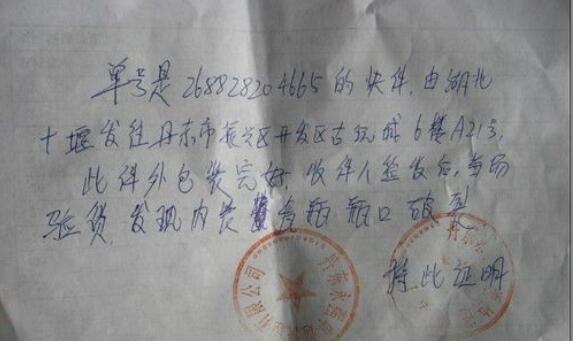 单号是268828204665的快件，由湖北
十堰发往丹东市振兴区开发区古玩城6楼A21号，
此件外包装完好，收件人签发后，当场
验货，发现内装瓷瓶瓶口破裂
特此证明